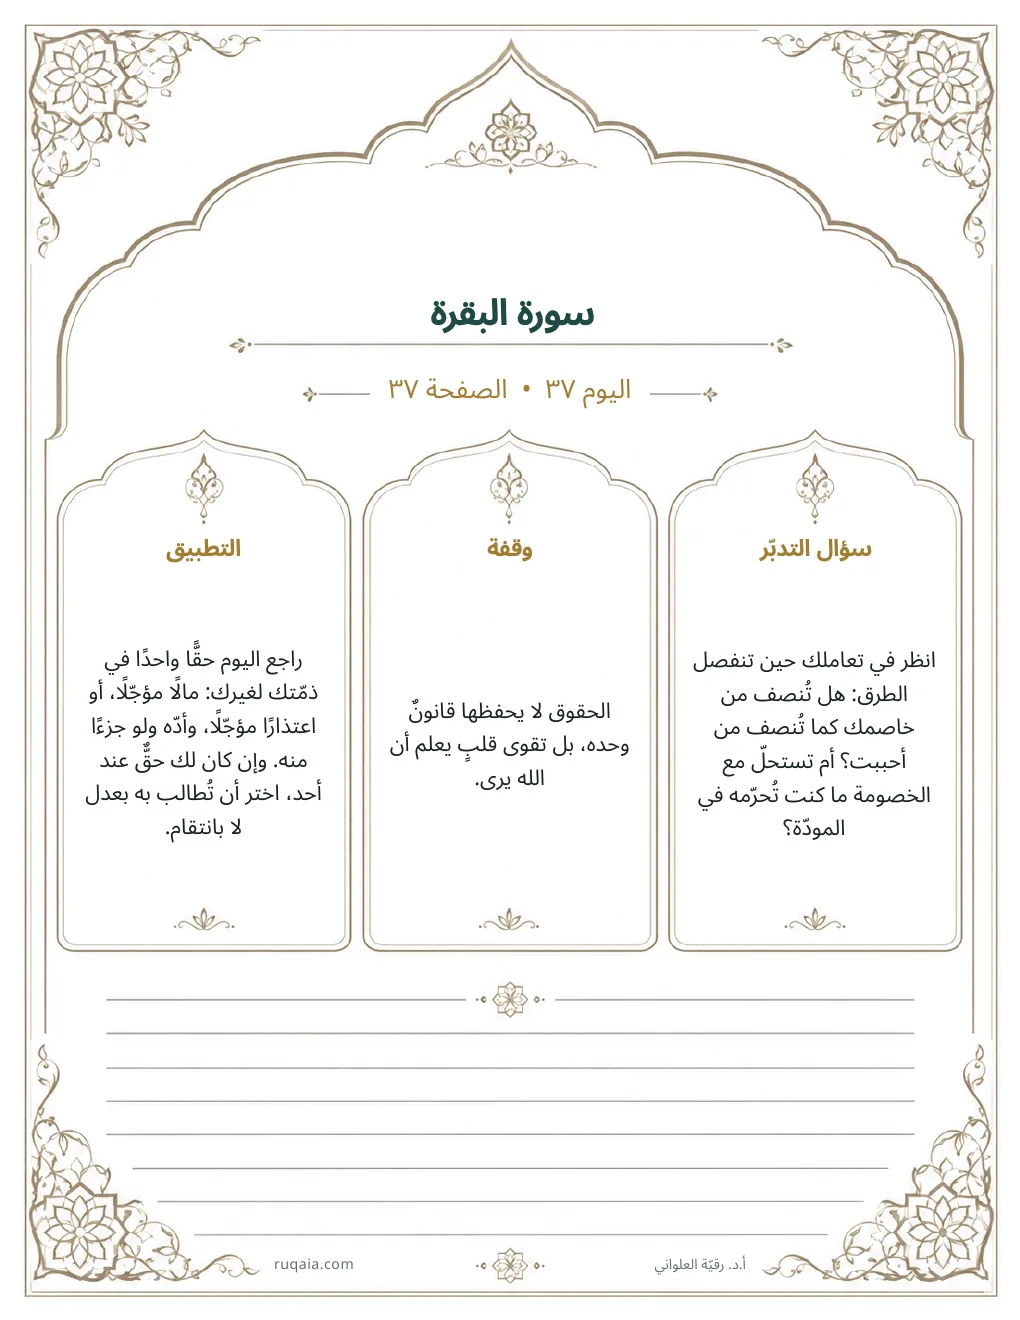 سورة البقرة
اليوم ٣٧ • الصفحة ٣٧
سؤال التدبّر
انظر في تعاملك حين تنفصل
الطرق: هل تُنصف من
خاصمك كما تُنصف من
أحببت؟ أم تستحلّ مع
الخصومة ما كنت تُحرّمه في
المودّة؟
وقفة
الحقوق لا يحفظها قانونٌ
وحده، بل تقوى قلبٍ يعلم أن
الله يرى.
التطبيق
راجع اليوم حقًّا واحدًا في
ذمّتك لغيرك: مالًا مؤجّلًا، أو
اعتذارًا مؤجّلًا، وأدّه ولو جزءًا
منه. وإن كان لك حقٌّ عند
أحد، اختر أن تُطالب به بعدل
لا بانتقام.
أ.د. رقيّة العلواني
ruqaia.com